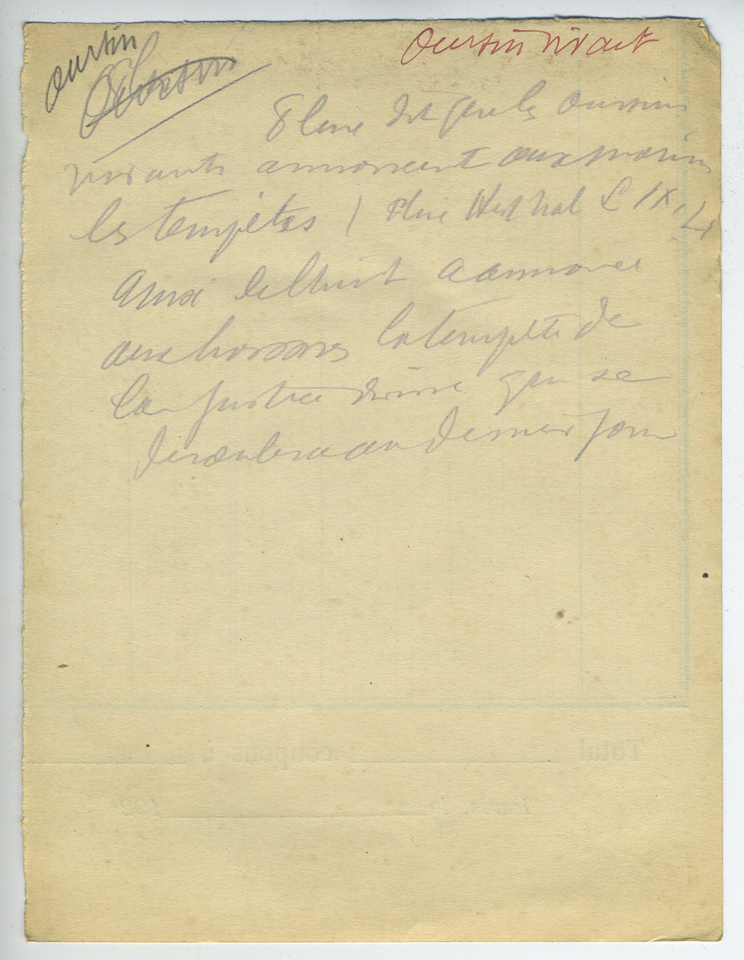 oursin
Oursin vivant
Pline dit que les oursins
vivants annoncent aux marins
les tempêtes ( Pline Hist Nat L IX,
Ainsi le Christ a annoncé
aux hommes la tempête de
la justice divine qui se
déroulera au dernier jour
Total coupons à
Paris, le 192